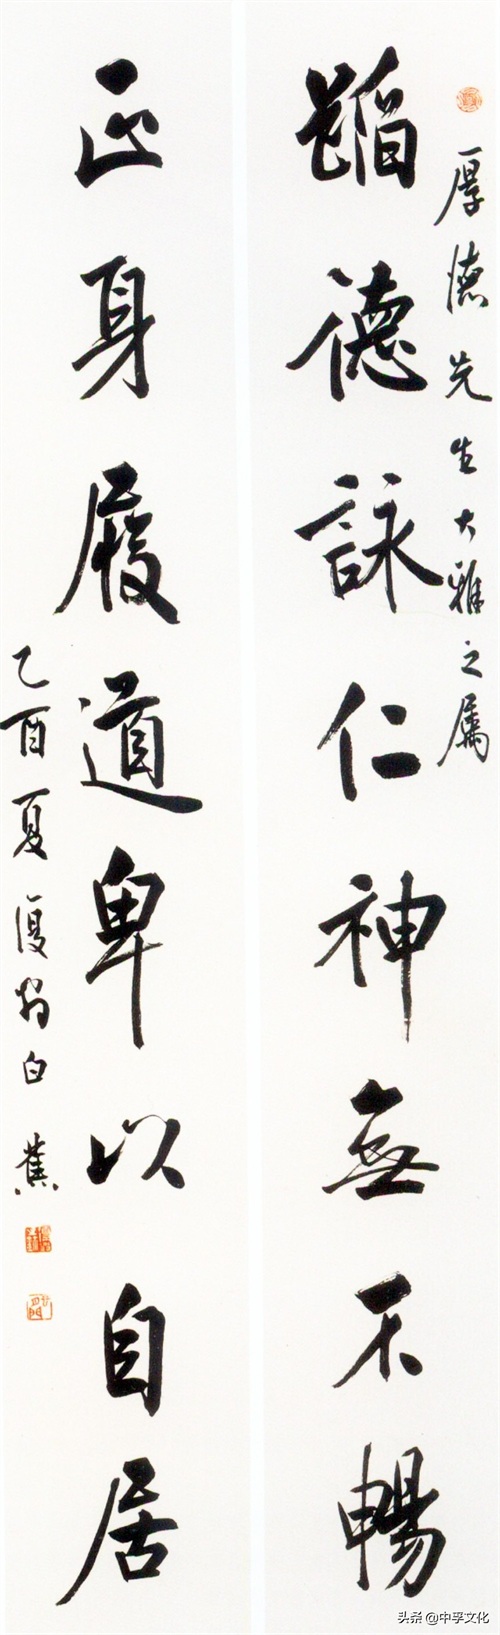 厚德先生大雅之属
蹈德詠仁神無不暢
正身履道卑以自居
乙酉夏復翁白蕉
头条 @中孚文化